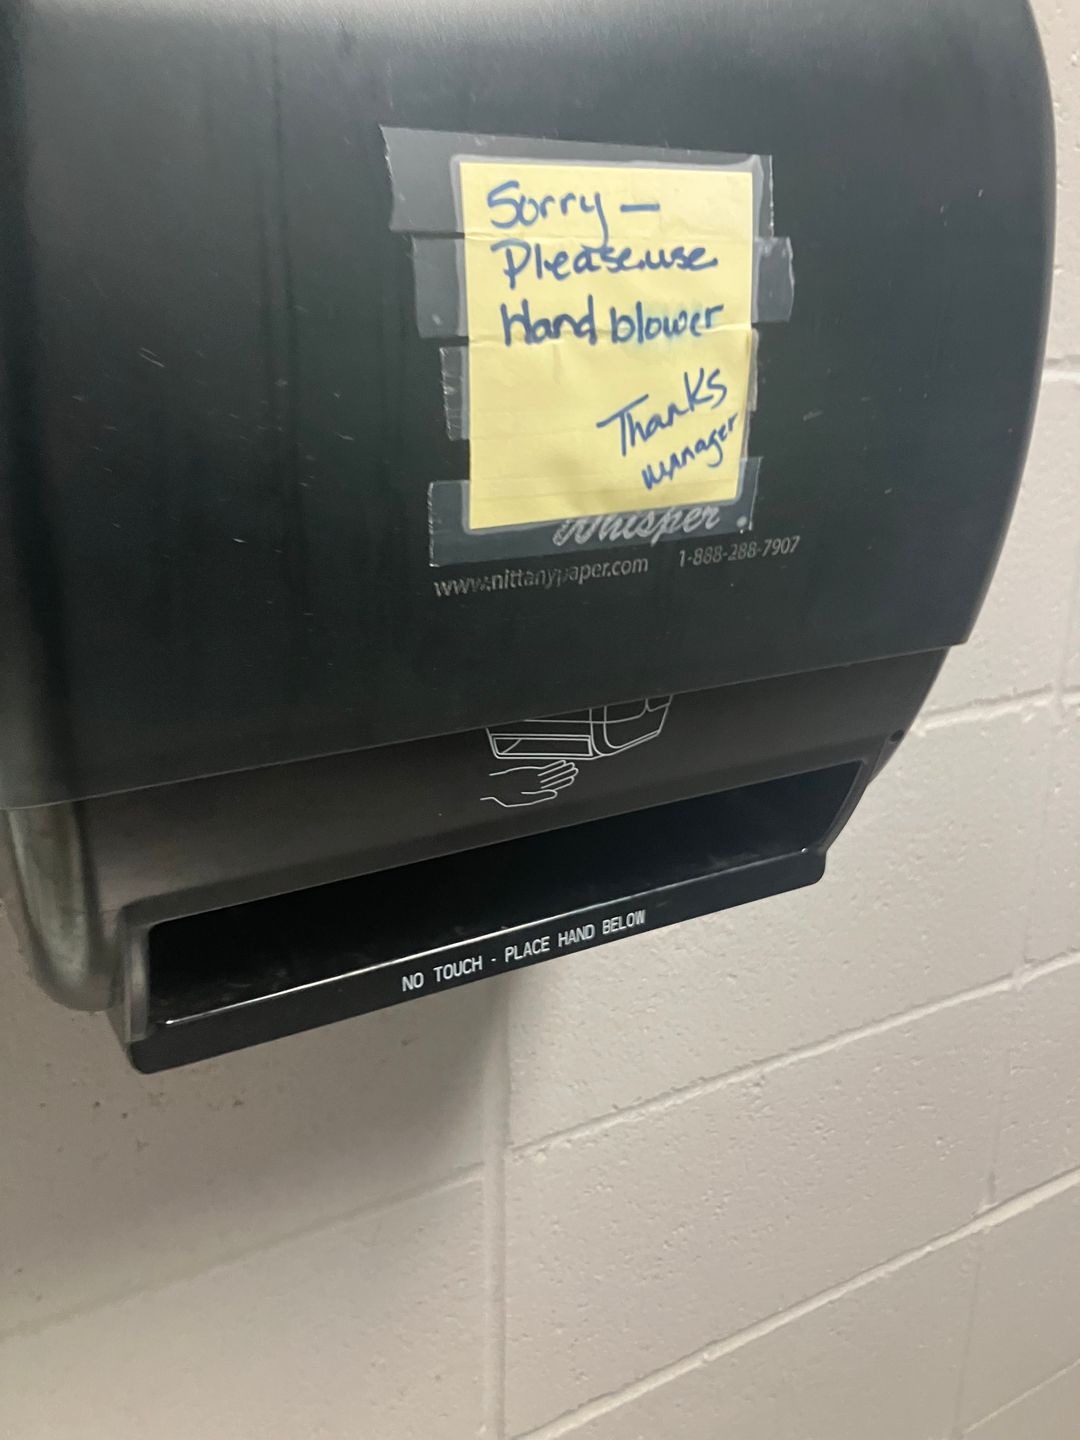 Sorry —
Please use
Hand blower
Thanks
Manager
Whisper
www.nittanypaper.com 1-888-288-7907
NO TOUCH - PLACE HAND BELOW